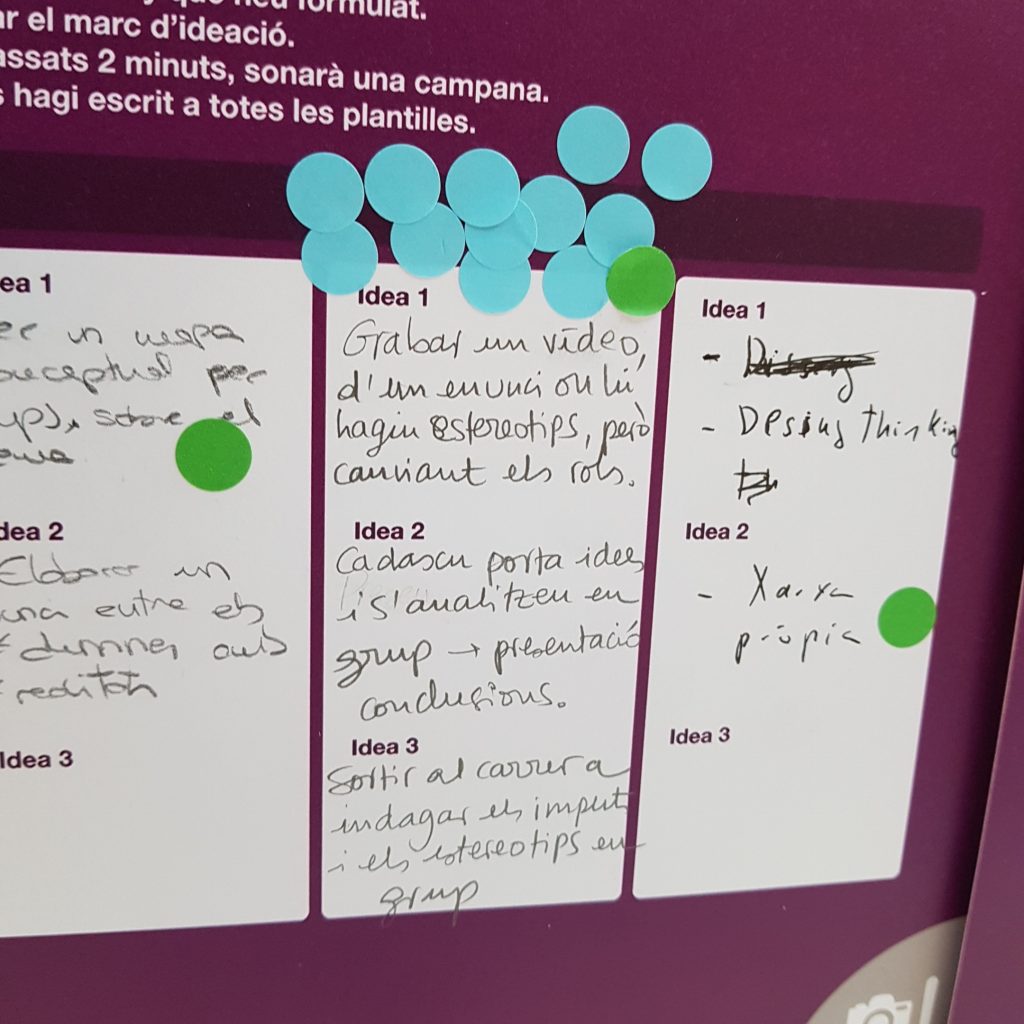 que heu formulat.
ar el marc d'ideació.
assats 2 minuts, sonarà una campana.
s hagi escrit a totes les plantilles.
ea 1
er un mapa
onceptual per
sobre el
dea 2
Elaborar un
una entre els
amb
Idea 3
Idea 1
Grabar un vídeo,
d'un enunci on hi
hagin estereotips, però
canviant els rols.
Idea 2
Cadascu porta idees
i s'analitzen en
grup → presentació
conclusions.
Idea 3
Sortir al carrer a
indagar els imputs
i els estereotips en
grup
Idea 1
- Desing Thinking
Idea 2
- Xarxa
pròpia
Idea 3